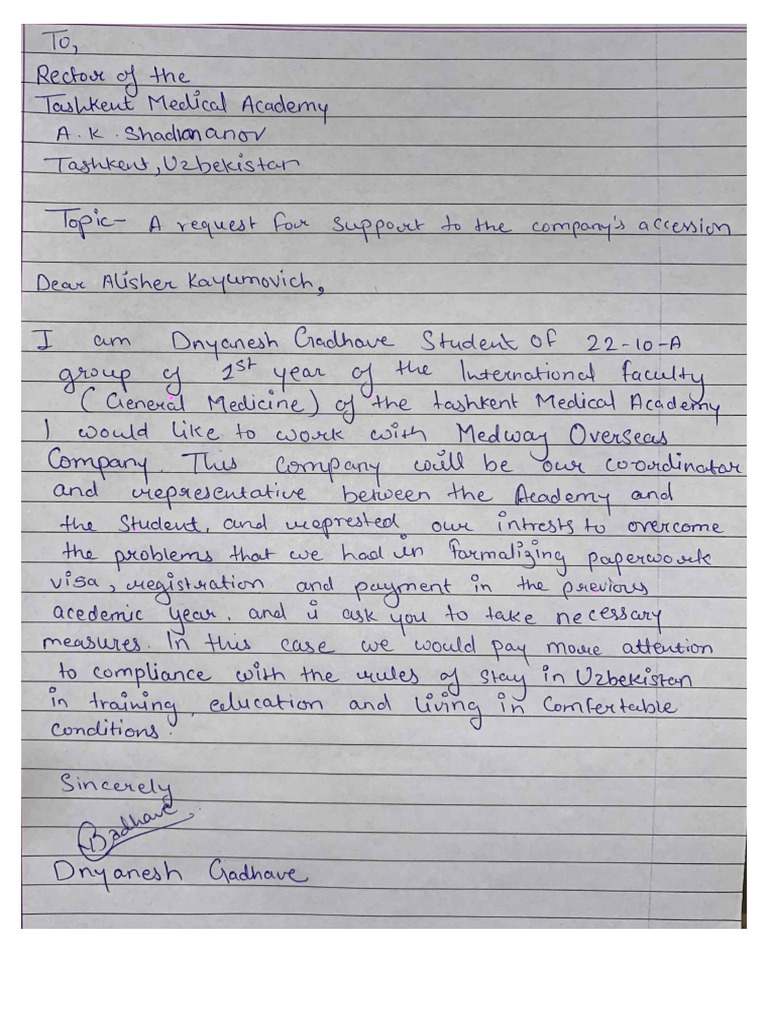 To,
Rector of the
Tashkent Medical Academy
A. K. Shadmanov
Tashkent, Uzbekistan
Topic- A request for support to the company's accession
Dear Alisher Kayumovich,
I am Dnyanesh Gadhave Student of 22-10-A
group of 1st year of the International faculty
(General Medicine) of the tashkent Medical Academy
I would like to work with Medway Overseas
Company. This company will be our coordinator
and representative between the Academy and
the Student, and represted our intrests to overcome
the problems that we had in formalizing paperwork
visa, registration and payment in the previous
acedemic year. and i ask you to take necessary
measures. In this case we would pay more attention
to compliance with the rules of stay in Uzbekistan
in training, education and living in Comfertable
conditions.
Sincerely
Gadhave
Dnyanesh Gadhave